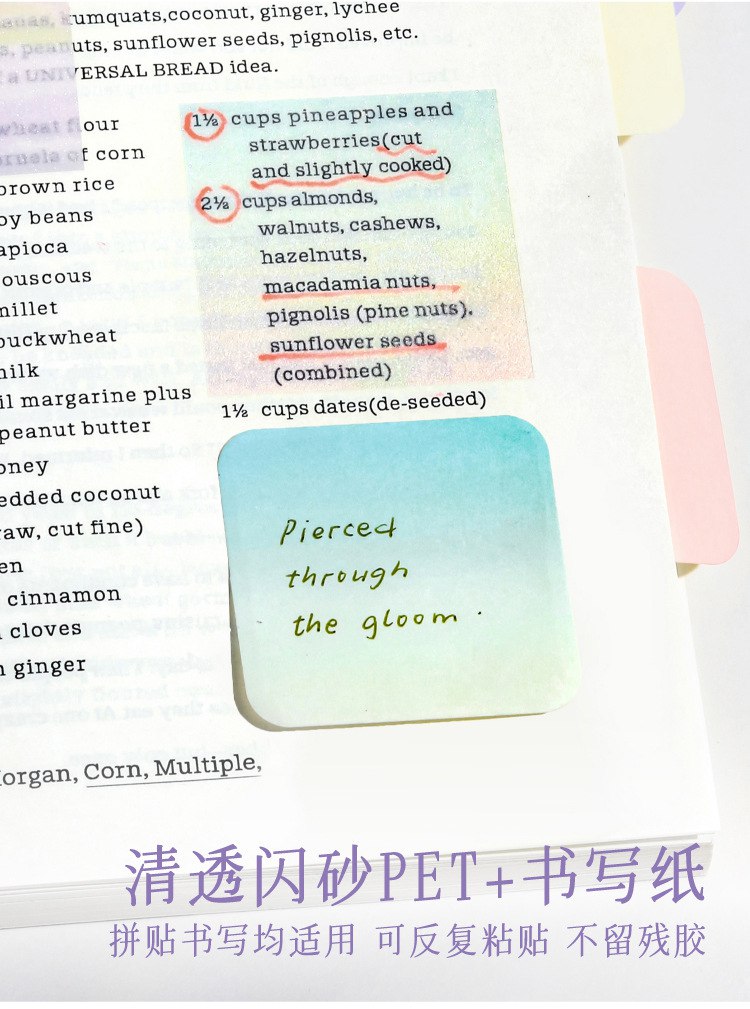 kumquats,coconut, ginger, lychee
peanuts, sunflower seeds, pignolis, etc.
a UNIVERSAL BREAD idea.
wheat flour
of corn
brown rice
beans
millet
buckwheat
margarine plus
peanut butter
coconut
cut fine)
cinnamon
cloves
ginger
1½ cups pineapples and
strawberries(cut
and slightly cooked)
2½ cups almonds,
walnuts, cashews,
hazelnuts,
macadamia nuts,
pignolis (pine nuts).
sunflower seeds
(combined)
1½ cups dates(de-seeded)
Pierced
through
the gloom.
Corn, Multiple,
清透闪砂PET+书写纸
拼贴书写均适用 可反复粘贴 不留残胶